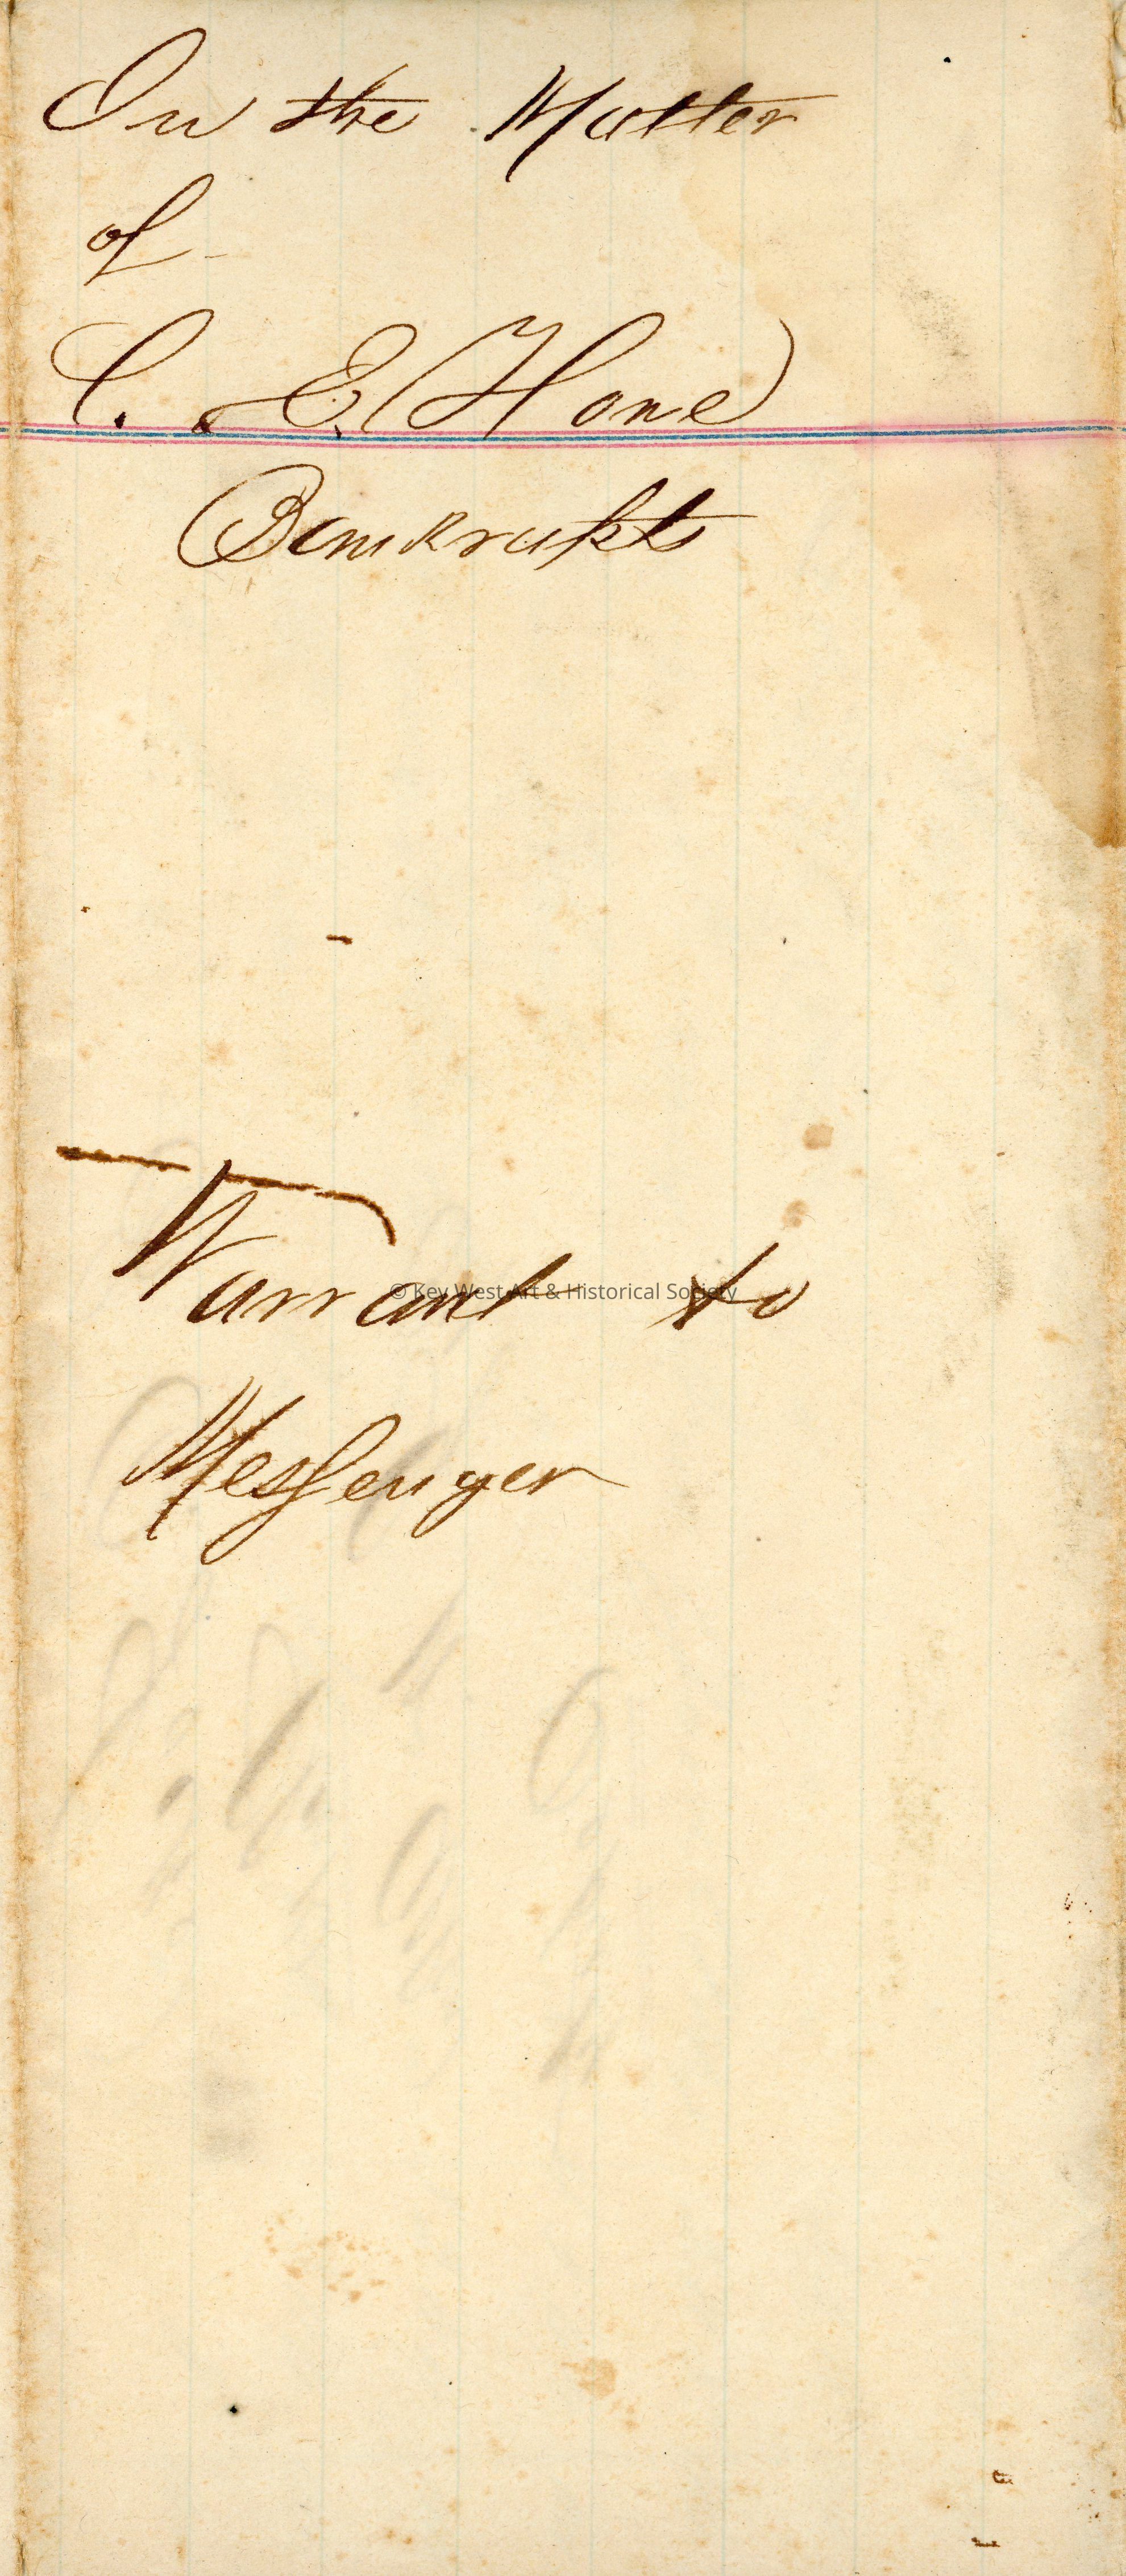 In the Matter
of
C. E. Hone
Bankrupts
Warrant to
© Key West Art & Historical Society
Messenger